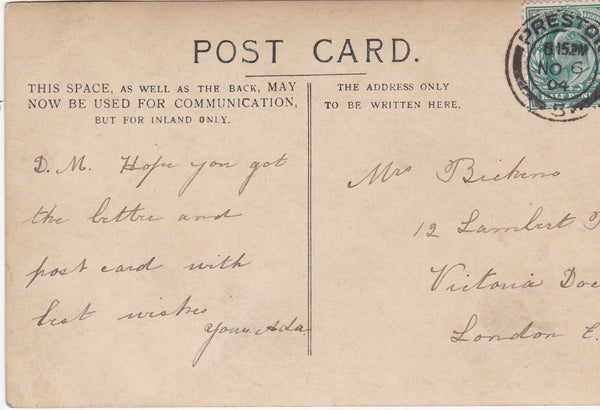 POST CARD.
THIS SPACE, AS WELL AS THE BACK, MAY
NOW BE USED FOR COMMUNICATION,
BUT FOR INLAND ONLY.
THE ADDRESS ONLY
TO BE WRITTEN HERE.
PRESTON
8.15 PM
NO 6
04
D. M. Hope you got
the letter and
post card with
best wishes
Your Ada
Mrs
12 Lambert
Victoria Doc
London E.